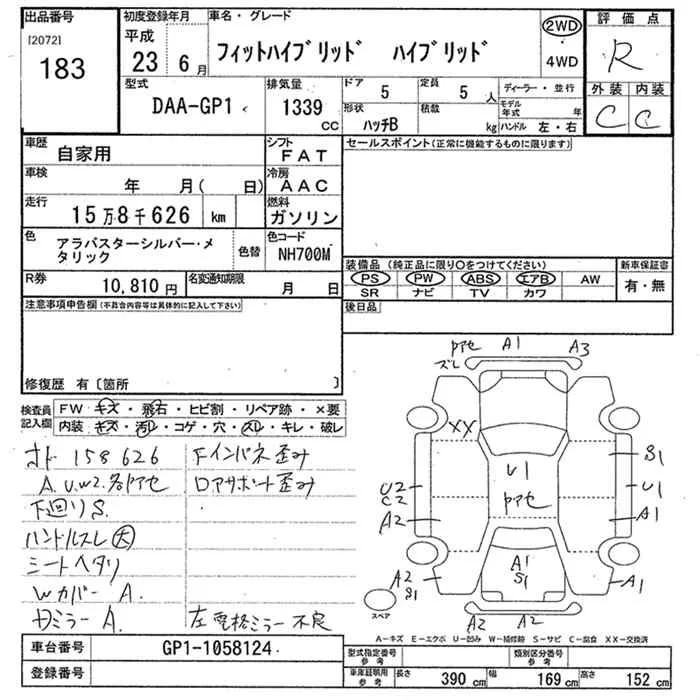 出品番号
[2072]
183
初度登録年月
平成
23 6月
車名・グレード
フィットハイブリッド ハイブリッド
2WD
4WD
評価点
R
外装 内装
C C
型式
DAA-GP1
排気量
1339
cc
ドア
5
定員
5 人
形状
ハッチB
積載
kg
ディーラー・並行
モデル年式 年
ハンドル 左・右
車歴
自家用
シフト
FAT
車検
年 月( 日)
冷房
AAC
走行
15万8千626 km
燃料
ガソリン
色
アラバスターシルバー・メタリック
色替
色コード
NH700M
R券
10,810 円
名変通知期限
月 日
セールスポイント(正常に機能するものに限ります)
装備品(純正品に限り○をつけてください)
PS PW ABS エアB AW
SR ナビ TV カワ
新車保証書
有・無
後日品
注意事項申告欄(不具合内容等は具体的に記入して下さい)
修復歴 有〔箇所 〕
検査員記入欄
FW キズ・飛石・ヒビ割・リペア跡・×要
内装・キズ・汚レ・コゲ・穴・スレ・キレ・破レ
オド 158626
A.U.W2.各部アセ
下廻りS.
ハンドルスレ大
シートヘタリ
Wカバー A.
Fインパネ歪み
Dアサポート歪み
左電格ミラー不良
アセ A1 A3
ズレ
XX
S1
U2
C2
U1
U1
アセ
A2
A1
A2
S1
A1
S1
A1
A2 A2
スペア
A-キズ E-エクボ U-凹み W-補修跡 S-サビ C-腐食 XX-交換済
車台番号
GP1-1058124
登録番号
型式指定番号
参考
類別区分番号
参考
車庫証明用
参考
長さ 390 cm 幅 169 cm 高さ 152 cm